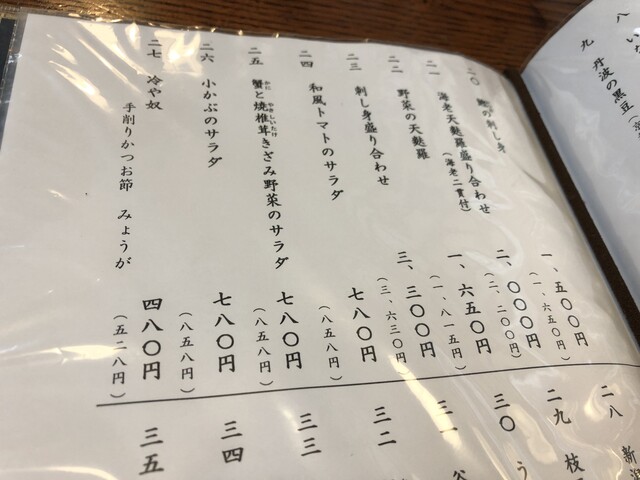 八 い
九 丹波の黒豆
二〇
の刺し身
一、五〇〇円
（一、六五〇円）
二一
海老天麩羅盛り合わせ
（海老二貫付）
二、〇〇〇円
（二、二〇〇円）
二二
野菜の天麩羅
一、六五〇円
（一、八一五円）
二三
刺し身盛り合わせ
三、三〇〇円
（三、六三〇円）
二四
和風トマトのサラダ
七八〇円
（八五八円）
二五
蟹と焼椎茸きざみ野菜のサラダ
かに やきしいたけ
七八〇円
（八五八円）
二六
小かぶのサラダ
七八〇円
（八五八円）
二七
冷や奴
手削りかつお節 みょうが
四八〇円
（五二八円）
二八 新
二九 枝
三〇 う
三一
三二
三三
三四
三五